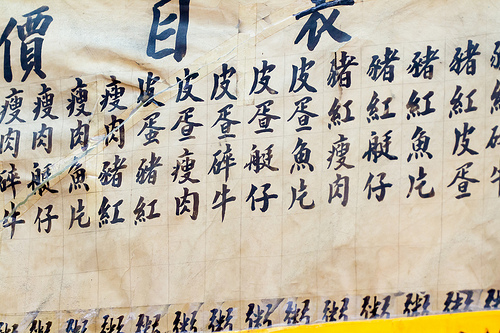 價目表
瘦肉碎牛粥
瘦肉艇仔粥
瘦肉魚片粥
瘦肉豬紅粥
皮蛋豬紅粥
皮蛋瘦肉粥
皮蛋碎牛粥
皮蛋艇仔粥
皮蛋魚片粥
豬紅瘦肉粥
豬紅艇仔粥
豬紅魚片粥
豬紅皮蛋粥